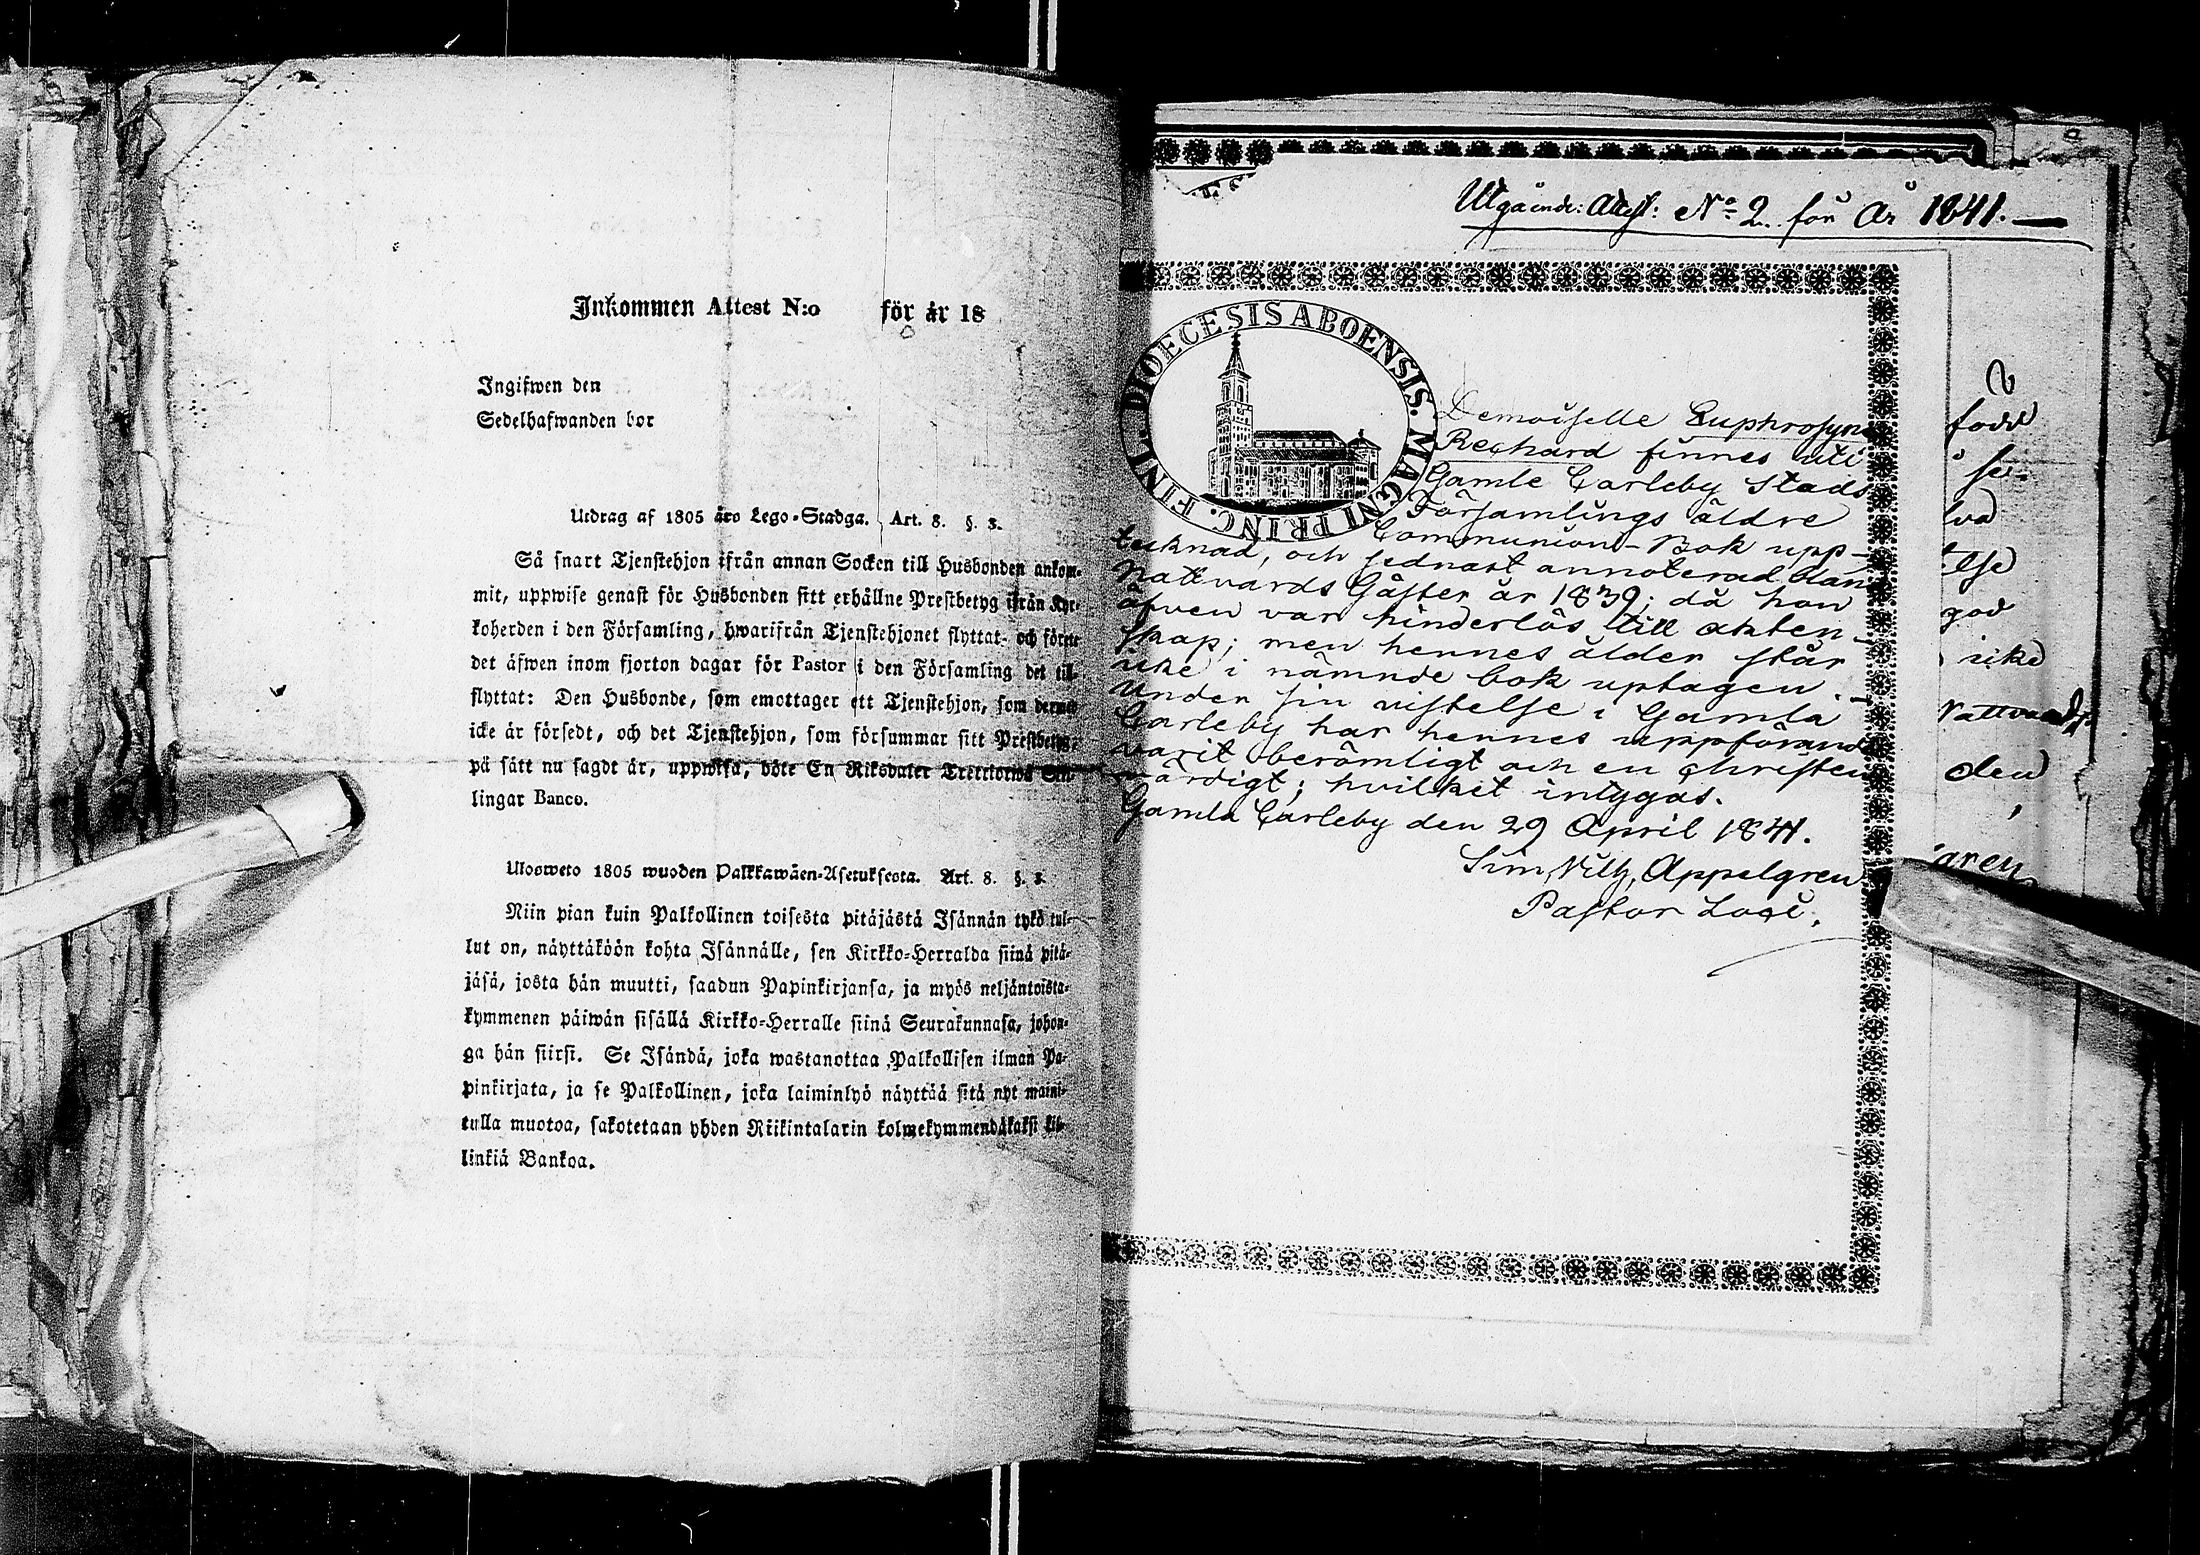 Inkommen Attest N:o för år 18
Ingifwen den
Sedelhafwanden bor
Utdrag af 1805 års Lego-Stadga. Art. 8. §. 3.
Så snart Tjenstehjon ifrån annan Socken till Husbonden ankom-
mit, uppwise genast för Husbonden sitt erhållne Prestbetyg ifrån Kyr-
koherden i den Församling, hwarifrån Tjenstehjonet flyttat- och förete
det äfwen inom fjorton dagar för Pastor i den Församling det till-
flyttat: Den Husbonde, som emottager ett Tjenstehjon, som dermed
icke är försedt, och det Tjenstehjon, som försummar sitt Prestbetyg,
på sätt nu sagdt är, uppwisa, böte En Riksdaler Trettiotwå Skil-
lingar Banco.
Ulosweto 1805 wuoden Palkkawäen-Asetuksesta. Art. 8. §. 3.
Niin pian kuin Palkollinen toisesta pitäjästä Isännän tykö tul-
lut on, näyttäköön kohta Isännälle, sen Kirkko-Herralda siinä pitä-
jäsä, josta hän muutti, saadun Papinkirjansa, ja myös neljäntoista-
kymmenen päiwän sisällä Kirkko-Herralle siinä Seurakunnasa, johon-
ga hän siirsi. Se Isändä, joka wastanottaa Palkollisen ilman Pa-
pinkirjata, ja se Palkollinen, joka laiminlyö näyttää sitä nyt maini-
tulla muotoa, sakotetaan yhden Riikintalarin kolmekymmendäkaksi kil-
linkiä Bankoa.
Utgående: Attest: No 2. för År 1841.
FINL. DIOECESIS ABOENSIS. MAGNI PRINC.
Demoiselle Euphrosyne
Rechard finnes uti
Gamle Carleby Stads
Församlings äldre
Communion-Bok upp-
tecknad, och sednast annoterad bland
Nattvards Gäster år 1839; då hon
äfven var hinderlös till äkten-
skap; men hennes ålder står
icke i nämnde bok uptagen.
Under sin vistelse i Gamla
Carleby har hennes uppförande
varit berömligt och en Christen
värdigt; hvilket intygas.
Gamla Carleby den 29 April 1841.
Sim, Vilh, Appelgren
Pastor Loci.
född
se-
lva
else
god
icke
Nattvards
den
gren